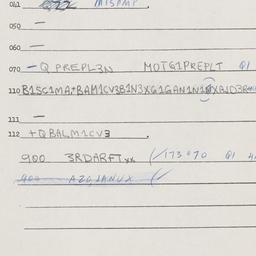 041 Q22 MISPMP .
050 —
060 —
070 — Q PREPL3N MOTG1PREPLT Q1
110 B1SC1MA+BAM1CV3B1N3XG1GAN1N1
111 —
112 +QBALM1CV3 .
900 3RDARFTxx (/173070 Q1
900 AZGJANUX (/